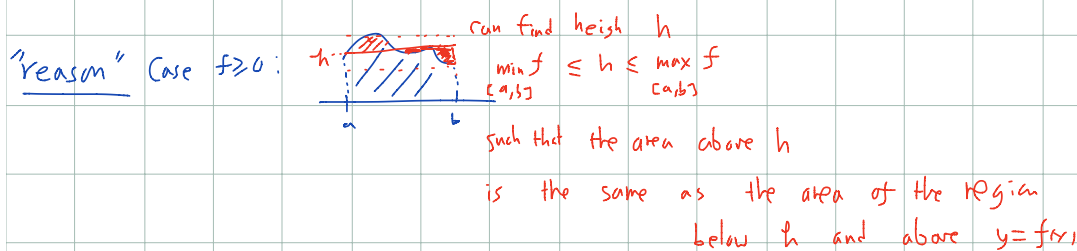 "reason" Case f≥0:
h
a
b
can find heigh h
min f ≤ h ≤ max f
[a,b] [a,b]
such that the area above h
is the same as the area of the region
below h and above y=f(x)